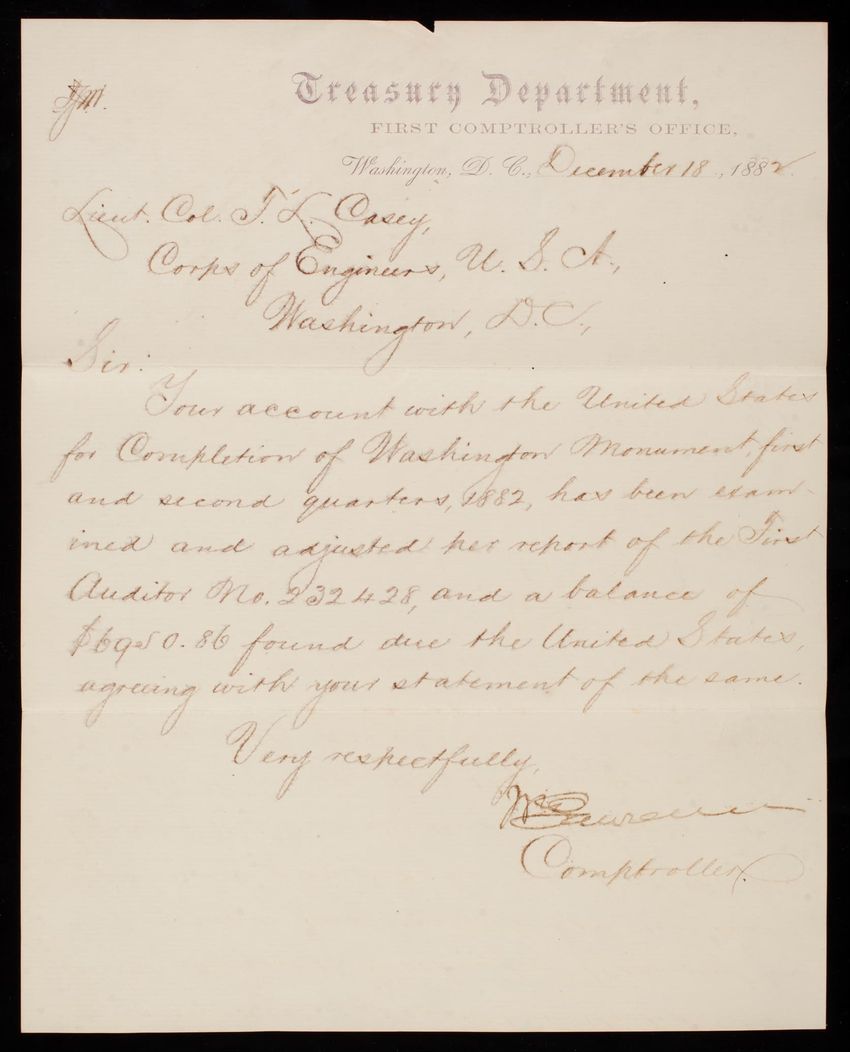 Treasury Department,
FIRST COMPTROLLER'S OFFICE,
Washington, D. C., December 18, 1882.
Lieut. Col. T. L. Casey,
Corps of Engineers, U. S. A.,
Washington, D.C.,
Sir:
Your account with the United States
for Completion of Washington Monument, first
and second quarters, 1882, has been exam-
ined and adjusted per report of the First
Auditor No. 232428, and a balance of
$6950.86 found due the United States,
agreeing with your statement of the same.
Very respectfully,
Comptroller.